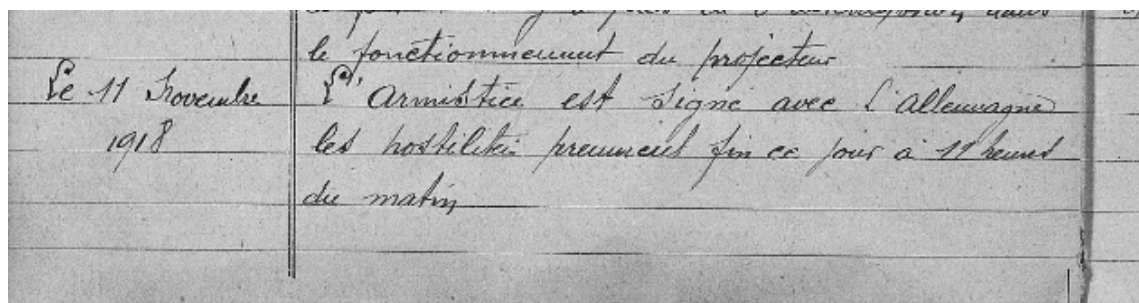 le fonctionnement du projecteur
Le 11 Novembre L'Armistice est signé avec L'allemagne
1918 les hostilités prennent fin ce jour à 11 heures
du matin